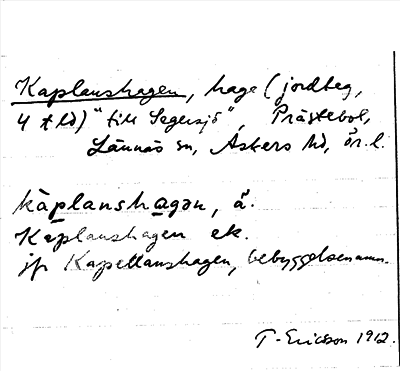 Kaplanshagen, hage (jordteg,
4 tld) "till Segersjö", Prästebol,
Lännäs sn, Askers hd, ör. l.
kàplanshagən, å.
Kaplanshagen ek.
jfr Kapellanshagen, bebyggelsenamn.
T. Ericsson 1912.